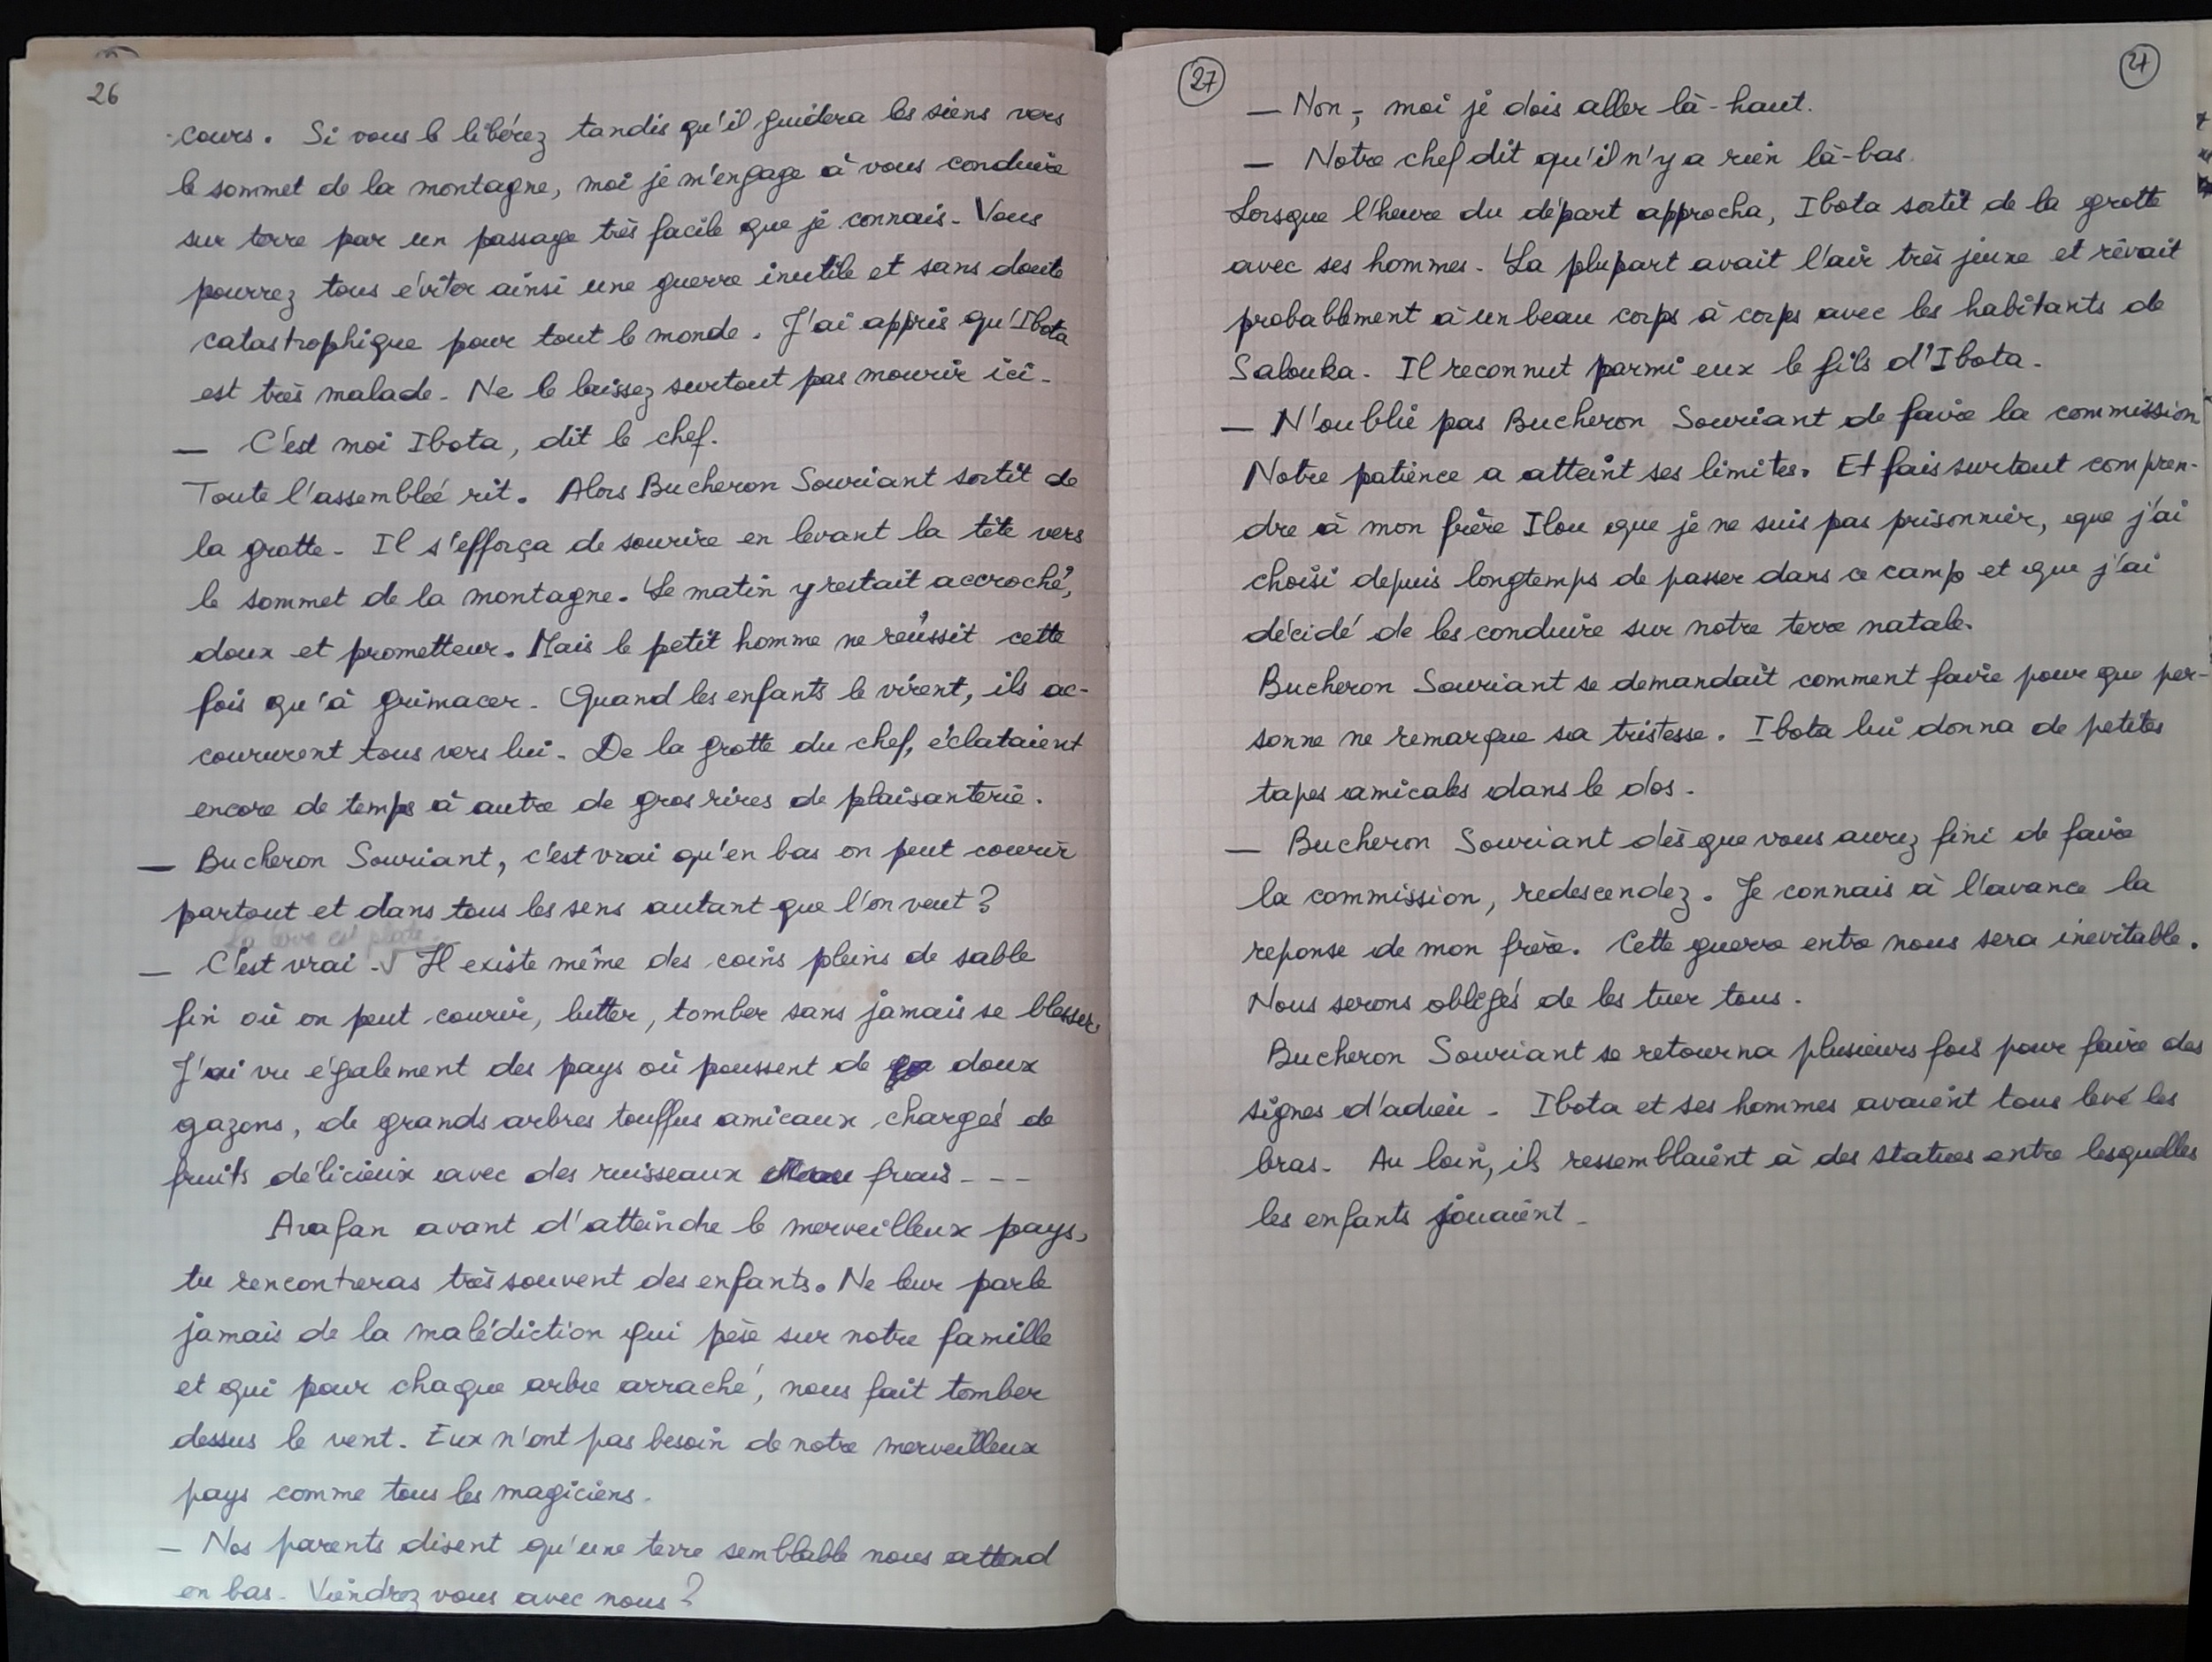 26
cours. Si vous le libérez tandis qu'il guidera les siens vers
le sommet de la montagne, moi je m'engage à vous conduire
sur terre par un passage très facile que je connais. Vous
pourrez tous éviter ainsi une guerre inutile et sans doute
catastrophique pour tout le monde. J'ai appris qu'Ibota
est très malade. Ne le laissez surtout pas mourir ici.
— C'est moi Ibota, dit le chef.
Toute l'assemblée rit. Alors Bucheron Souriant sortit de
la grotte. Il s'efforça de sourire en levant la tête vers
le sommet de la montagne. Le matin y restait accroché,
doux et prometteur. Mais le petit homme ne réussit cette
fois qu'à grimacer. Quand les enfants le virent, ils ac-
coururent tous vers lui. De la grotte du chef, éclataient
encore de temps à autre de gros rires de plaisanterie.
— Bucheron Souriant, c'est vrai qu'en bas on peut courir
partout et dans tous les sens autant que l'on veut ?
La terre est plate.
— C'est vrai. √ Il existe même des coins pleins de sable
fin où on peut courir, lutter, tomber sans jamais se blesser.
J'ai vu également des pays où poussent de doux
gazons, de grands arbres touffus amicaux chargés de
fruits délicieux avec des ruisseaux frais ---
Arafan avant d'atteindre le merveilleux pays,
tu rencontreras très souvent des enfants. Ne leur parle
jamais de la malédiction qui pèse sur notre famille
et qui pour chaque arbre arraché, nous fait tomber
dessus le vent. Eux n'ont pas besoin de notre merveilleux
pays comme tous les magiciens.
— Nos parents disent qu'une terre semblable nous attend
en bas. Viendrez vous avec nous ?
27
27
— Non, moi je dois aller là-haut.
— Notre chef dit qu'il n'y a rien là-bas.
Lorsque l'heure du départ approcha, Ibota sortit de la grotte
avec ses hommes. La plupart avait l'air très jeune et rêvait
probablement à un beau corps à corps avec les habitants de
Salouka. Il reconnut parmi eux le fils d'Ibota.
— N'oublie pas Bucheron Souriant de faire la commission.
Notre patience a atteint ses limites. Et fais surtout compren-
dre à mon frère Ilou que je ne suis pas prisonnier, que j'ai
choisi depuis longtemps de passer dans ce camp et que j'ai
décidé de les conduire sur notre terre natale.
Bucheron Souriant se demandait comment faire pour que per-
sonne ne remarque sa tristesse. Ibota lui donna de petites
tapes amicales dans le dos.
— Bucheron Souriant dès que vous aurez fini de faire
la commission, redescendez. Je connais à l'avance la
reponse de mon frère. Cette guerre entre nous sera inevitable.
Nous serons obligés de les tuer tous.
Bucheron Souriant se retourna plusieurs fois pour faire des
signes d'adieu. Ibota et ses hommes avaient tous levé les
bras. Au loin, ils ressemblaient à des statues entre lesquelles
les enfants jouaient.